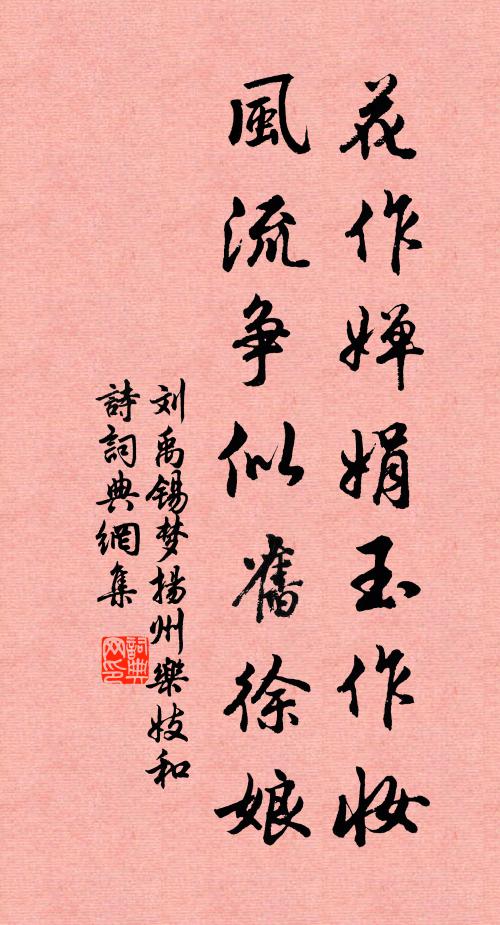 花作婵娟玉作妆
風流争似舊徐娘
刘禹锡梦揚州樂妓和
詩詞典網集
詞典
网印